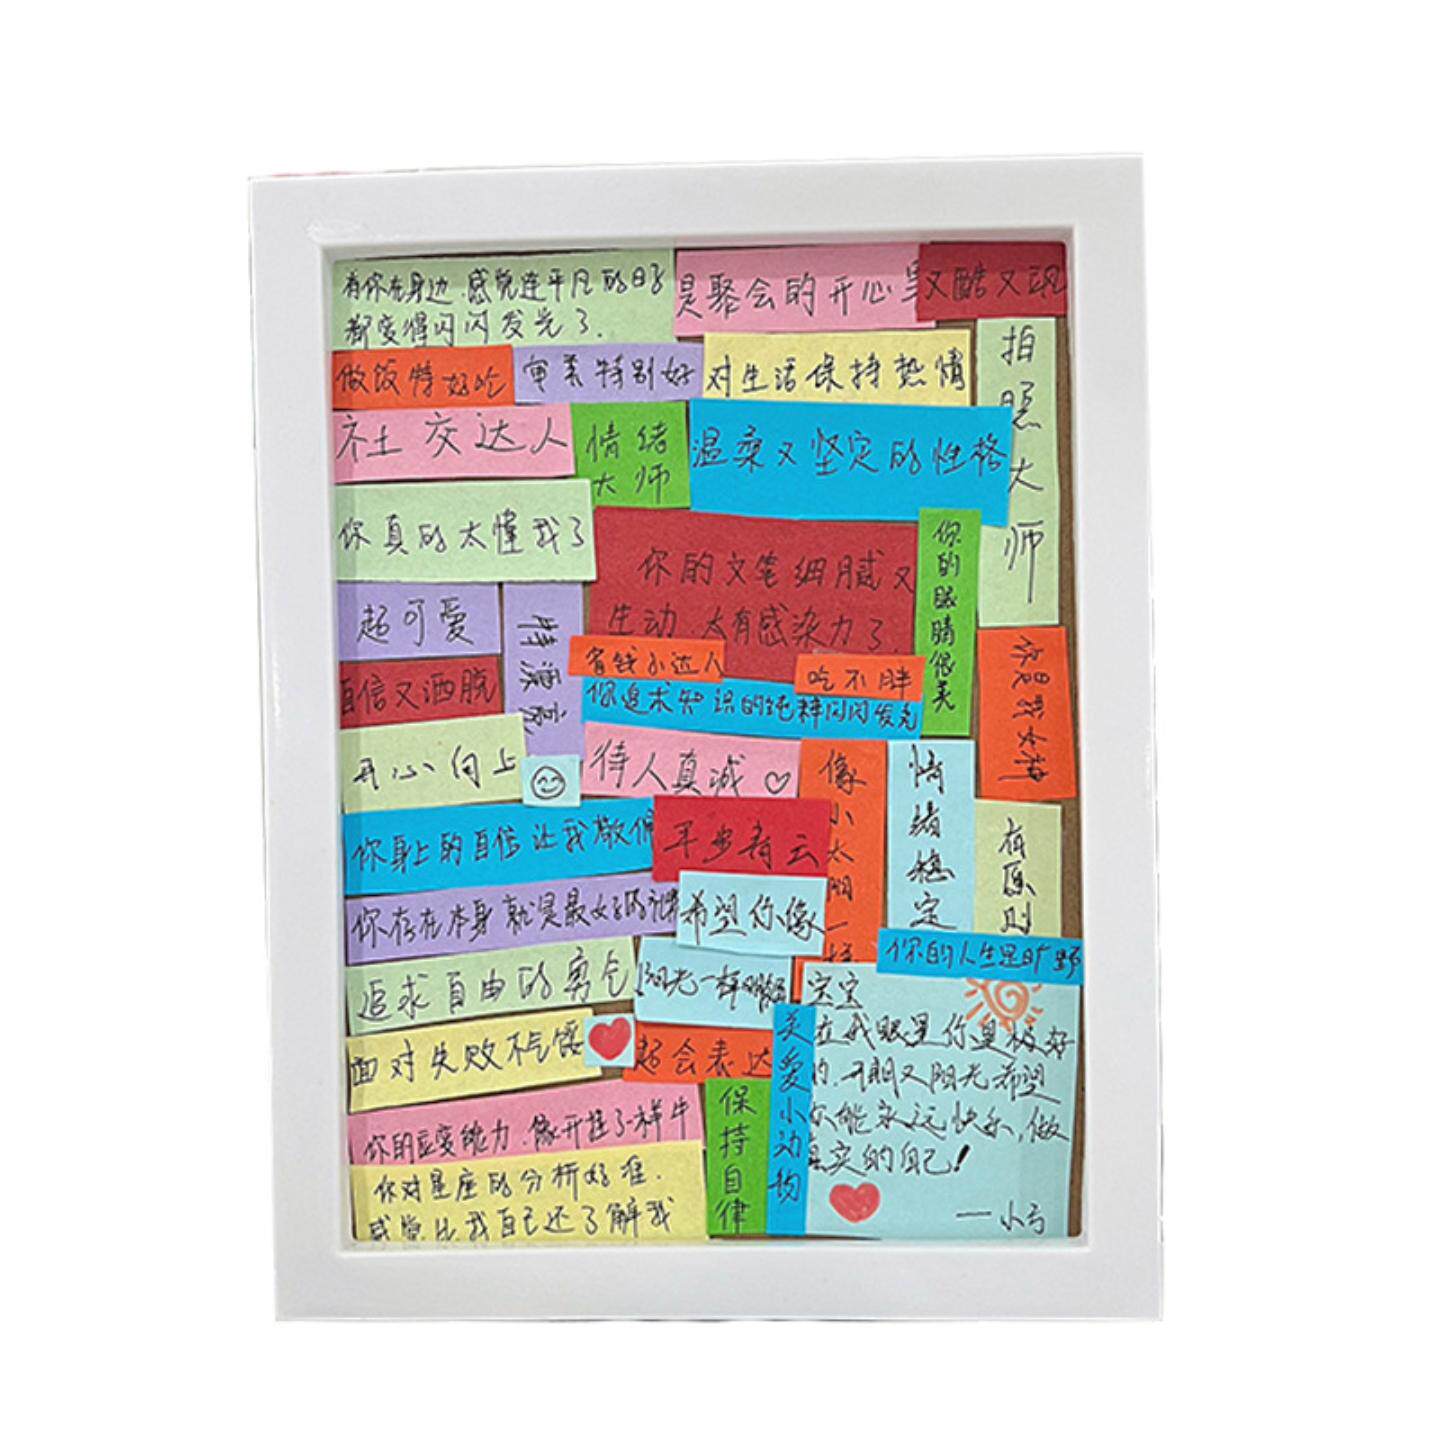 有你在身边,感觉连平凡的日子
都变得闪闪发光了.
是聚会的开心果
又酷又飒
做饭特好吃
审美特别好
对生活保持热情
拍照大师
社交达人
情绪
大师
温柔又坚定的性格
你真的太懂我了
你的文笔细腻又
生动,太有感染力了.
你的眼睛很美
超可爱
特漂亮
省钱小达人
吃不胖
你是我女神
自信又洒脱
你追求知识的纯粹闪闪发光
开心向上
待人真诚♡
像小太阳一样
情绪稳定
有原则
你身上的自信让我敬佩
平步青云
你存在本身就是最好的
希望你像
你的人生是旷野
追求自由的勇气
阳光一样
面对失败不气馁
超会表达
关爱小动物
宝宝
在我眼里你是极好
的,开朗又阳光希望
你能永远快乐,做
真实的自己!
——小亏
保持自律
你的应变能力,像开挂了一样牛
你对星座的分析好准.
感觉比我自己还了解我